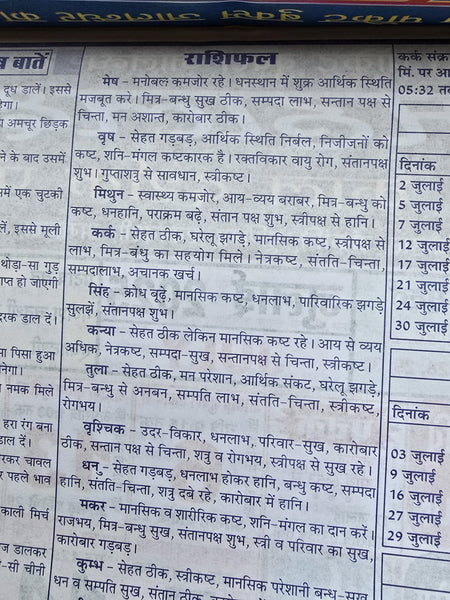 पाकेट बुक्स जालन्धर की
ब बातें
दूध डालें। इससे
हेगा।
अमचूर छिड़क
ने के बाद उसमें
में एक चुटकी
लें, इससे मूली
थोड़ा-सा गुड़
प्त हो जाएगी
दरक डाल दें।
पिसा हुआ
नेगा।
नमक मिले
हरा रंग बना
डाल दें।
रकर चावल
पहले भाव
काली मिर्च
ज डालकर
-सी चीनी
राशिफल
मेष - मनोबल कमजोर रहे। धनस्थान में शुक्र आर्थिक स्थिति
मजबूत करे। मित्र-बन्धु सुख ठीक, सम्पदा लाभ, सन्तान पक्ष से
चिन्ता, मन अशान्त, कारोबार ठीक।
वृष - सेहत गड़बड़, आर्थिक स्थिति निर्बल, निजीजनों को
कष्ट, शनि-मंगल कष्टकारक है। रक्तविकार वायु रोग, संतानपक्ष
शुभ। गुप्तशत्रु से सावधान, स्त्रीकष्ट।
मिथुन - स्वास्थ्य कमजोर, आय-व्यय बराबर, मित्र-बन्धु को
कष्ट, धनहानि, पराक्रम बढ़े, संतान पक्ष शुभ, स्त्रीपक्ष से हानि।
कर्क - सेहत ठीक, घरेलू झगड़े, मानसिक कष्ट, स्त्रीपक्ष से
लाभ, मित्र-बंधु का सहयोग मिले। नेत्रकष्ट, संतति-चिन्ता,
सम्पदालाभ, अचानक खर्च।
सिंह - क्रोध बूढ़े, मानसिक कष्ट, धनलाभ, पारिवारिक झगड़े
सुलझें, संतानपक्ष शुभ।
कन्या - सेहत ठीक लेकिन मानसिक कष्ट रहे। आय से व्यय
अधिक, नेत्रकष्ट, सम्पदा-सुख, सन्तानपक्ष से चिन्ता, स्त्रीकष्ट।
तुला - सेहत ठीक, मन परेशान, आर्थिक संकट, घरेलू झगड़े,
मित्र-बन्धु से अनबन, सम्पति लाभ, संतति-चिन्ता, स्त्रीकष्ट,
रोगभय।
वृश्चिक - उदर-विकार, धनलाभ, परिवार-सुख, कारोबार
ठीक, सन्तान पक्ष से चिन्ता, शत्रु व रोगभय, स्त्रीपक्ष से सुख रहे।
धनु - सेहत गड़बड़, धनलाभ होकर हानि, बन्धु कष्ट, सम्पदा
हानि, संतति-चिन्ता, शत्रु दबे रहे, कारोबार में हानि।
मकर - मानसिक व शारीरिक कष्ट, शनि-मंगल का दान करें।
राजभय, मित्र-बन्धु सुख, संतानपक्ष शुभ, स्त्री व परिवार का सुख,
कारोबार गड़बड़।
कुम्भ - सेहत ठीक, स्त्रीकष्ट, मानसिक परेशानी बन्धु-सुख,
धन व सम्पति सुख, संतान
कर्क संक्र
मिं. पर आ
05:32 तव
दिनांक
2 जुलाई
5 जुलाई
7 जुलाई
12 जुलाई
17 जुलाई
21 जुलाई
24 जुलाई
30 जुलाई
दिनांक
03 जुलाई
9 जुलाई
16 जुलाई
27 जुलाई
29 जुलाई